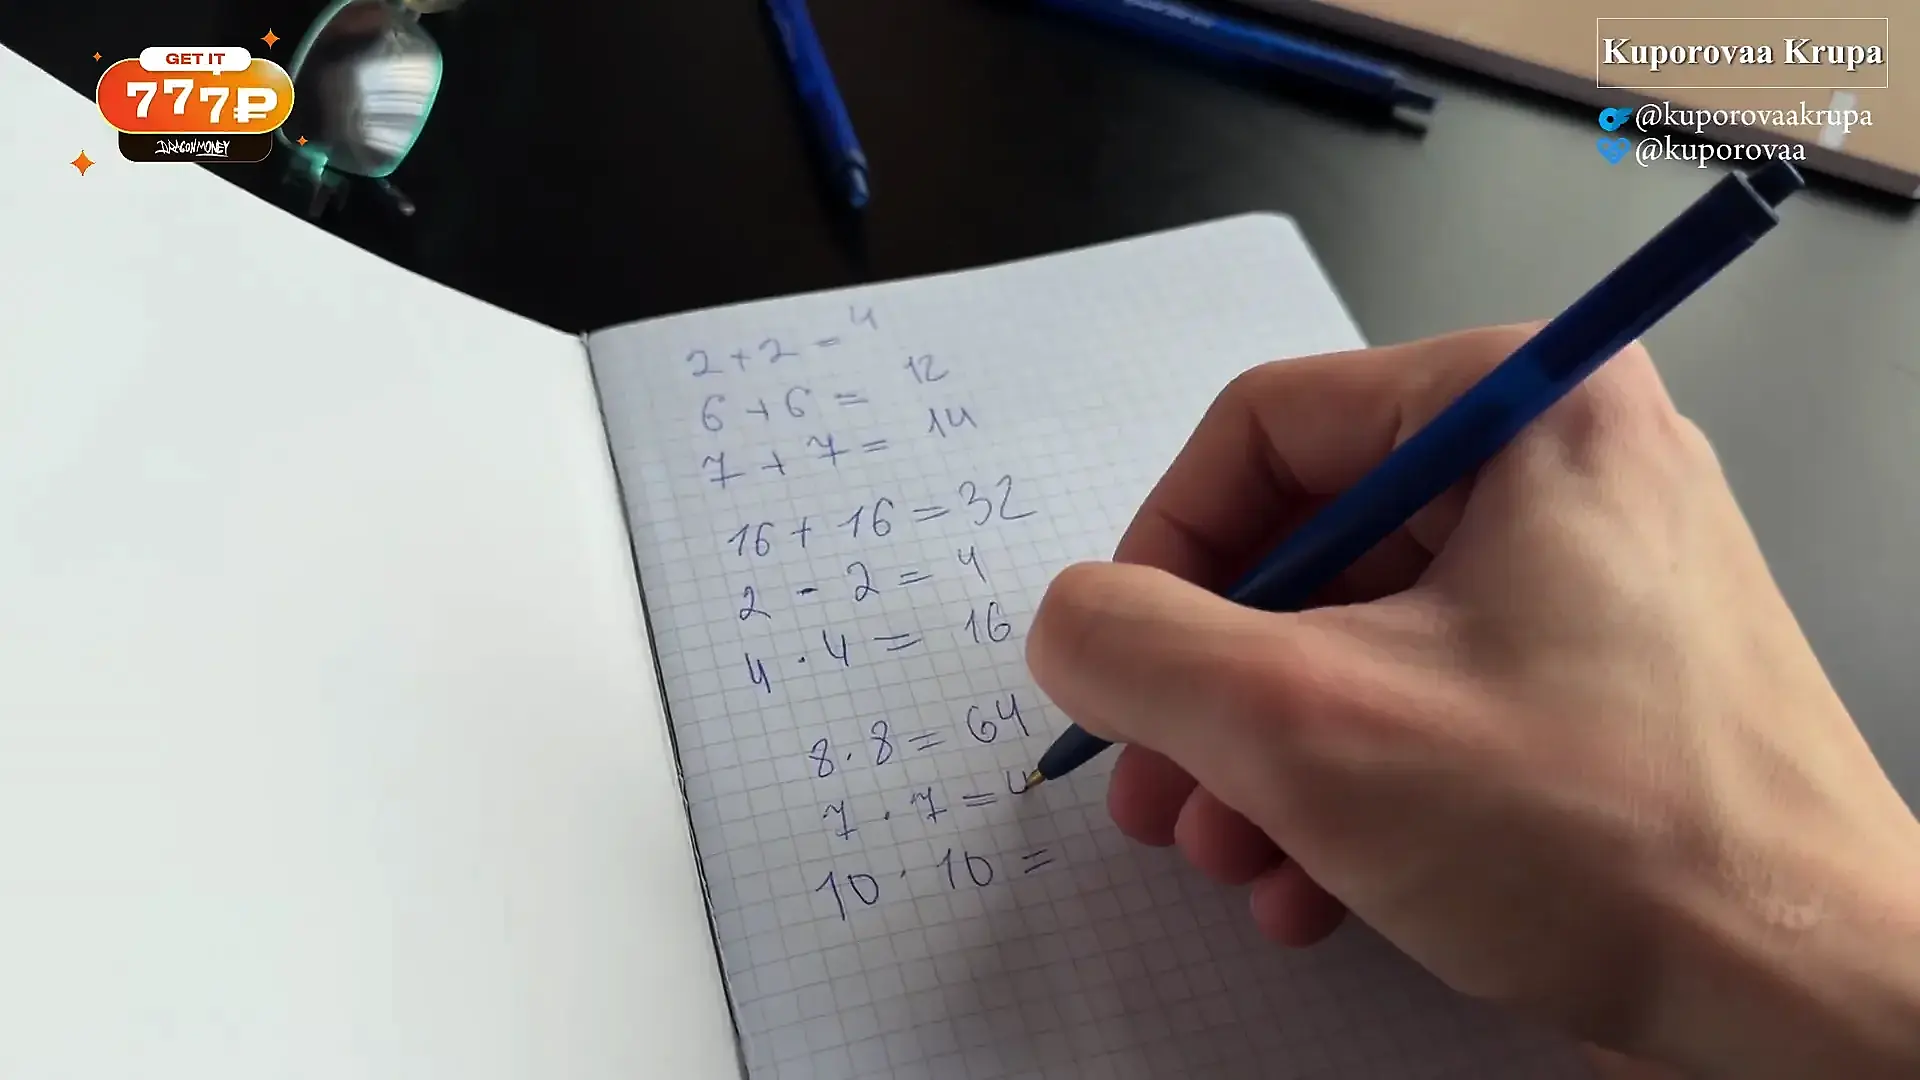 GET IT
777₽
DRAGON MONEY
Kuporovaa Krupa
@kuporovaakrupa
@kuporovaa
2 + 2 = 4
6 + 6 = 12
7 + 7 = 14
16 + 16 = 32
2 - 2 = 4
4 · 4 = 16
8 · 8 = 64
7 · 7 = 4
10 · 10 =